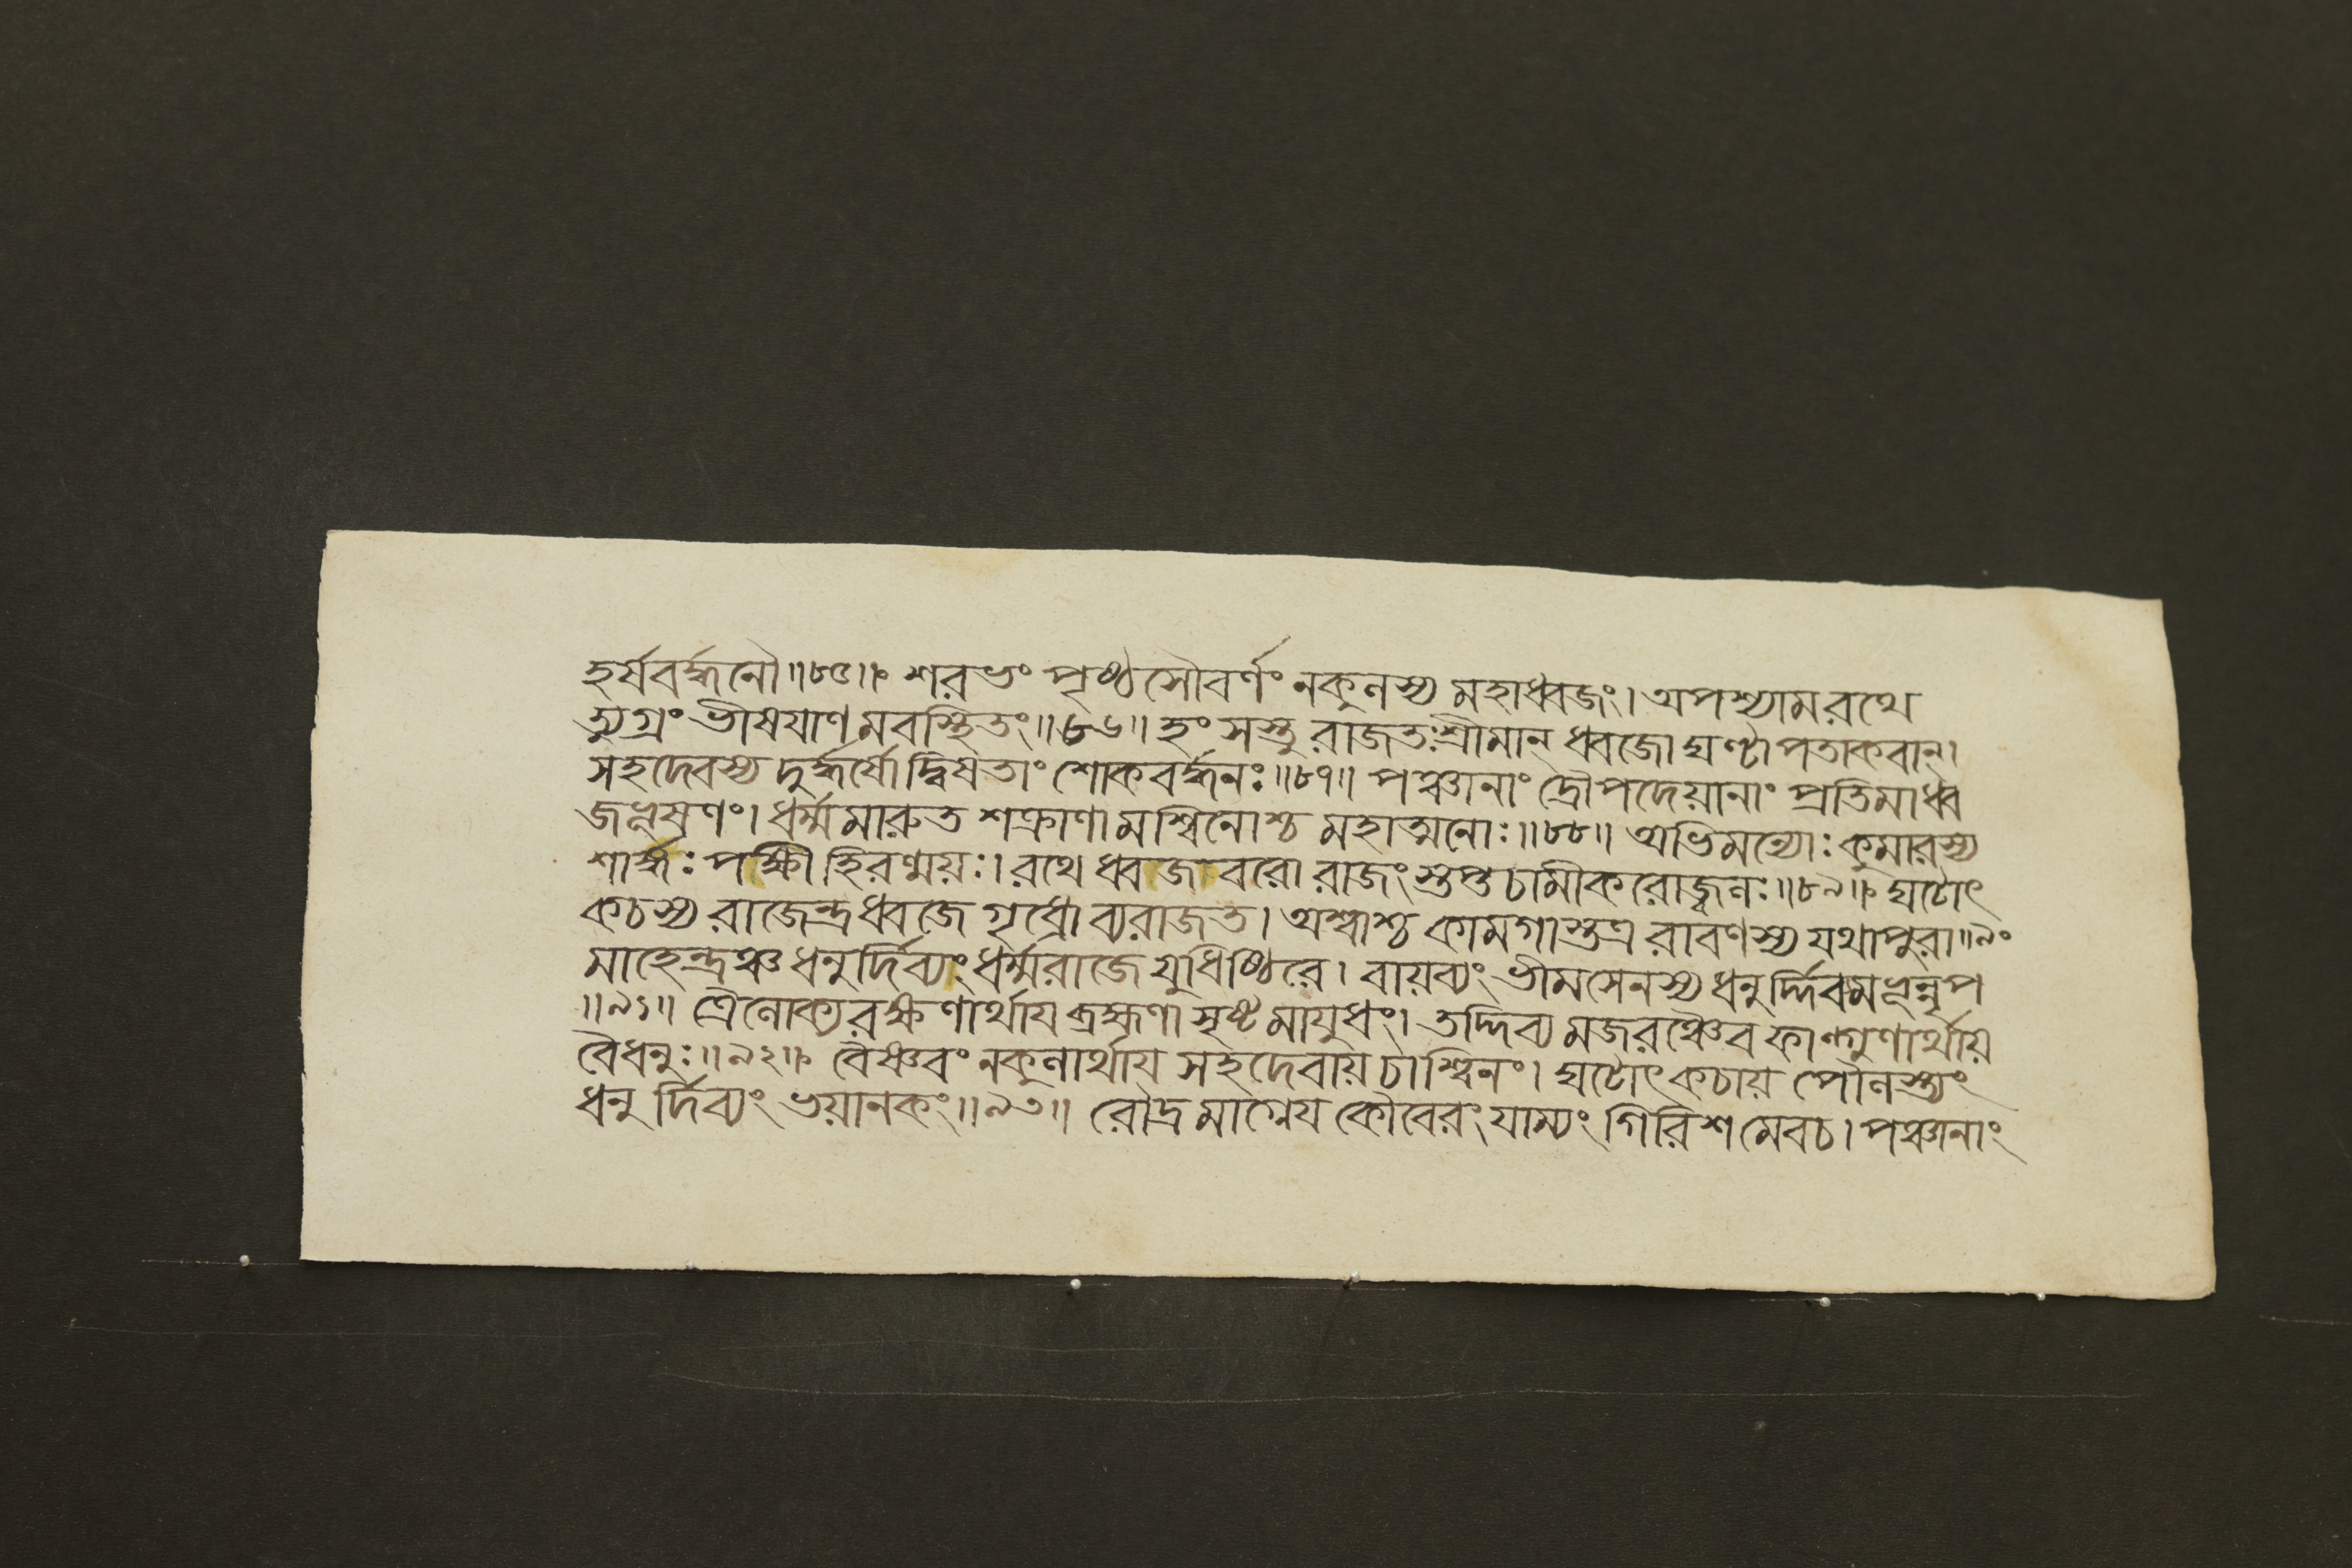 হর্ষবর্দ্ধনৌ॥৮৫॥ শরভং পৃষ্ঠসৌবর্ণং নকুলস্য মহাধ্বজং। অপশ্যামরথে
ত্যুগ্রং ভীষয়াণমবস্থিতং॥৮৬॥ হংসস্তু রাজতঃশ্রীমান্ ধ্বজো ঘণ্টাপতাকবান্।
সহদেবস্য দুর্দ্ধর্ষো দ্বিষতাং শোকবর্দ্ধনঃ॥৮৭॥ পঞ্চানাং দ্রৌপদেয়ানাং প্রতিমাধ্ব
জভূষণং। ধর্ম্মমারুত শক্রাণামশ্বিনোশ্চ মহাত্মনোঃ॥৮৮॥ অভিমন্যোঃ কুমারস্য
শার্ঙ্গঃ পক্ষী হিরণ্ময়ঃ। রথে ধ্বজাবরো রাজংস্তপ্তচামীকরোজ্জ্বলঃ॥৮৯॥ ঘটোৎ
কচস্য রাজেন্দ্র ধ্বজে গৃধ্রো ব্যরাজত। অশ্বাশ্চ কামগাস্তত্র রাবণস্য যথাপুরা॥৯০
মাহেন্দ্রঞ্চ ধনুর্দিব্যং ধর্ম্মরাজে যুধিষ্ঠিরে। বায়ব্যং ভীমসেনস্য ধনুর্দ্দিবমভূন্নৃপ
॥৯১॥ ত্রৈলোক্যরক্ষণার্থায ব্রহ্মণা সৃষ্টমায়ুধং। তদ্দিব্যমজরঞ্চৈব ফাল্গুণার্থায়
বৈধনুঃ॥৯২॥ বৈষ্ণবং নকুলার্থায সহদেবায় চাশ্বিনং। ঘটোৎকচায় পৌলস্ত্যং
ধনুর্দিব্যং ভয়ানকং॥৯৩॥ রৌদ্রমাগ্নেয কৌবেরং যাম্যং গিরিশমেবচ। পঞ্চানাং